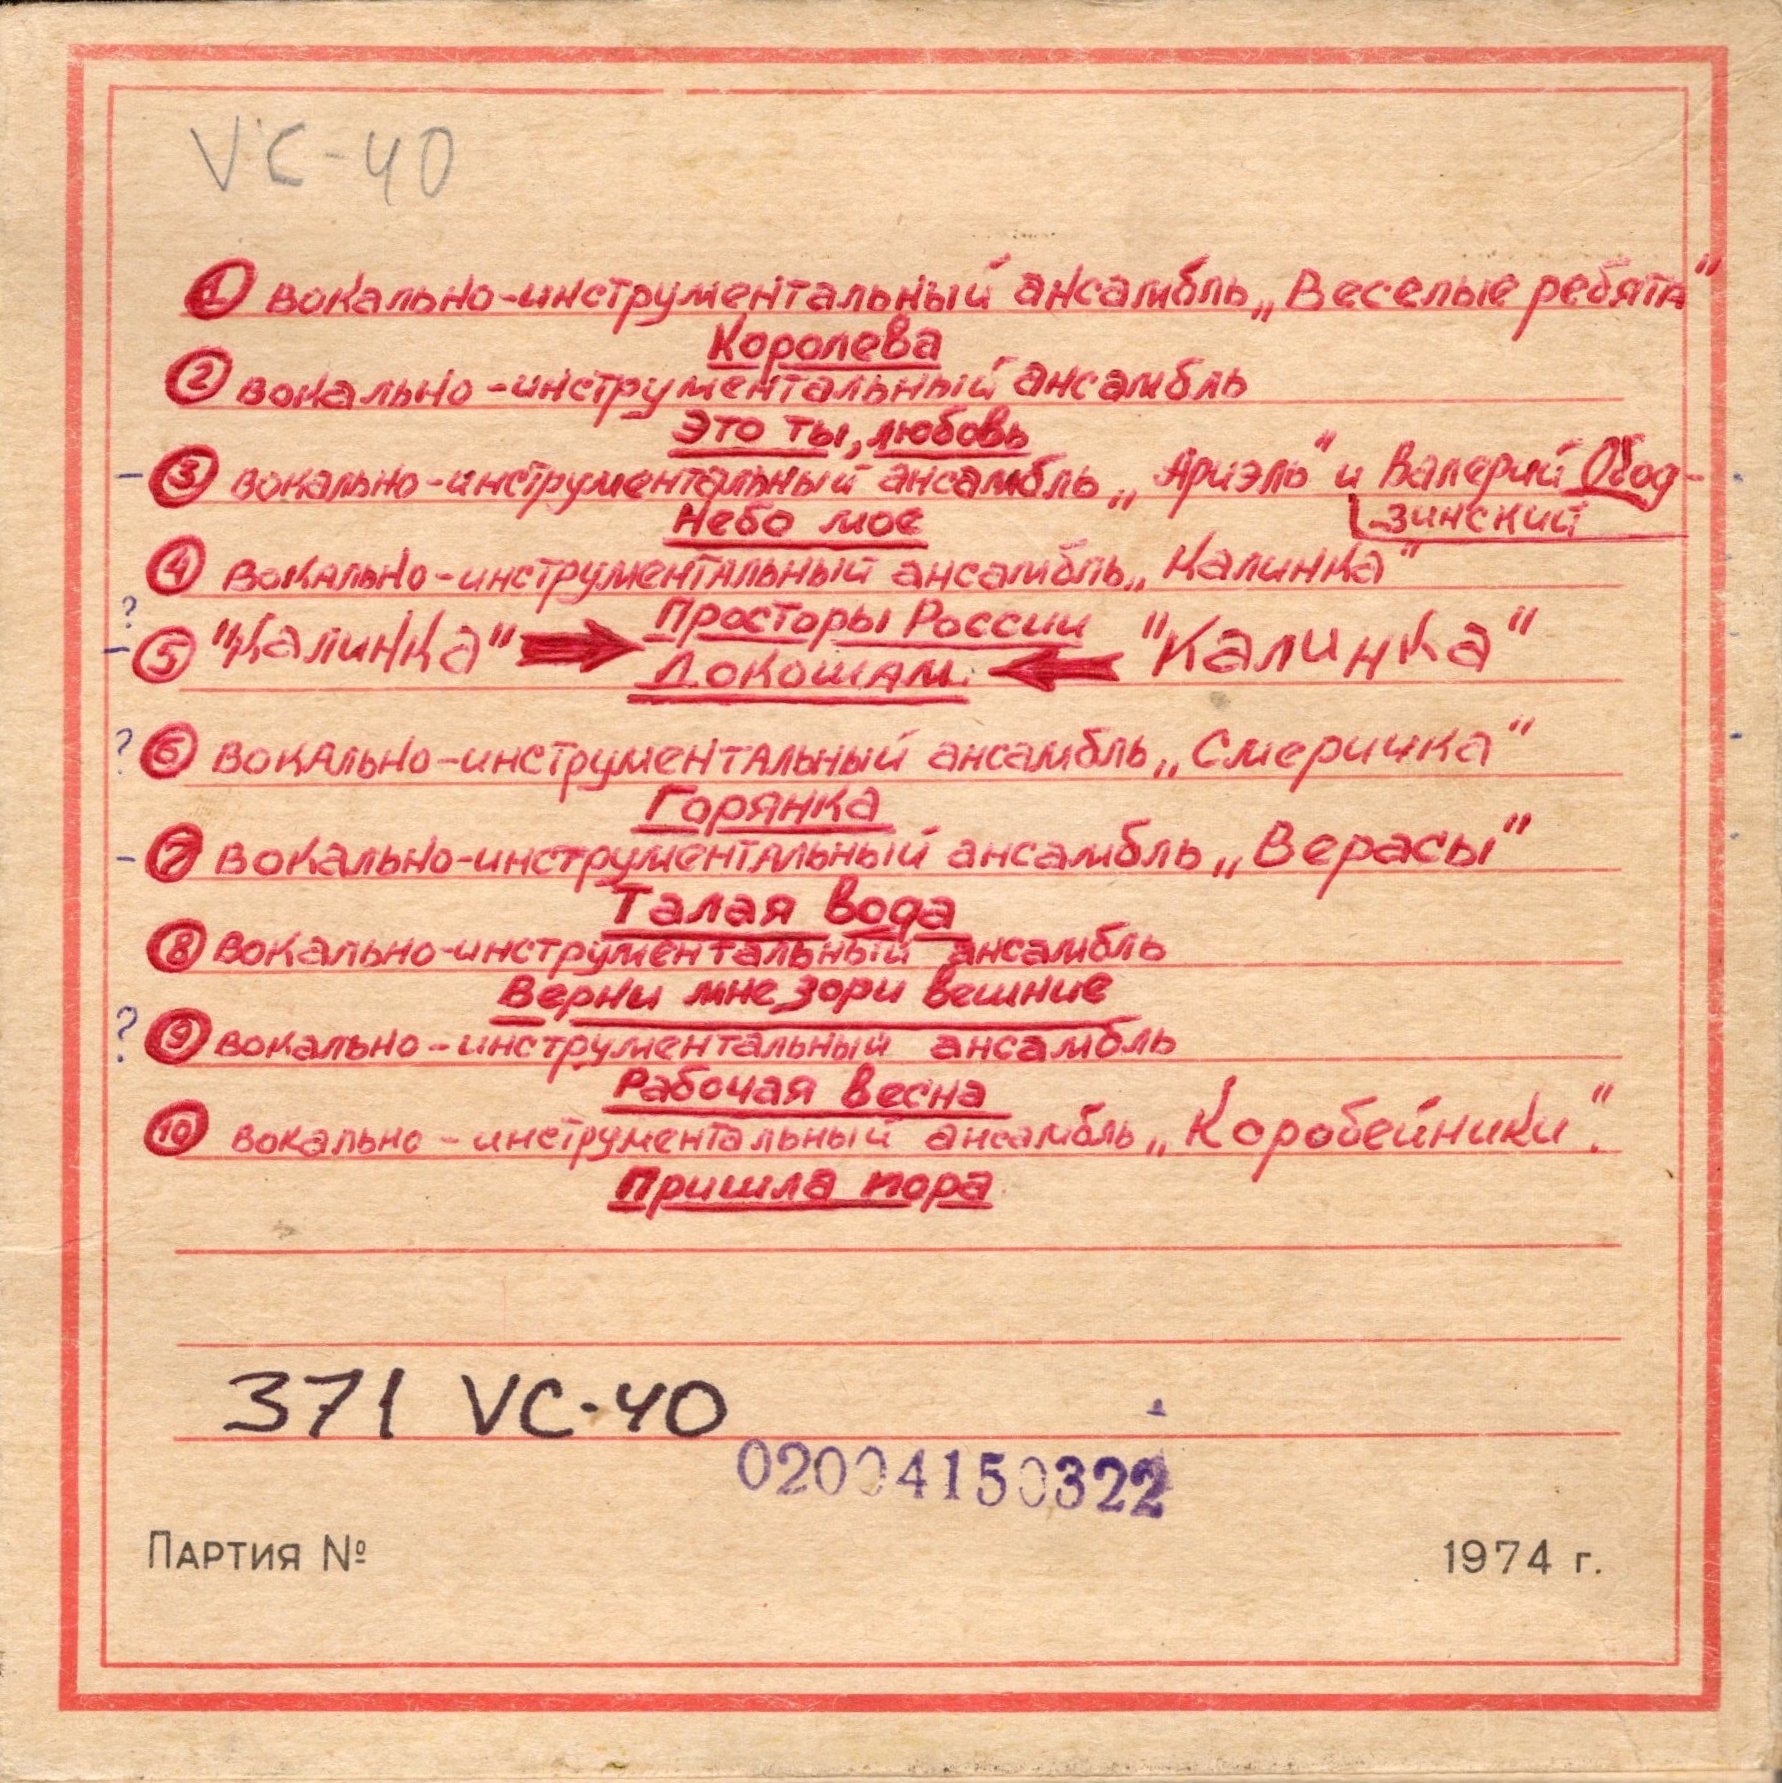 VC-40
1 вокально-инструментальный ансамбль „Веселые ребята"
Королева
2 вокально-инструментальный ансамбль
Это ты, любовь
- 3 вокально-инструментальный ансамбль „Ариэль" и Валерий Обод-
зинский
Небо мое
4 вокально-инструментальный ансамбль „Калинка"
Просторы России
? - 5 "Калинка" Локошам "Калинка"
? 6 вокально-инструментальный ансамбль „Смеричка"
Горянка
- 7 вокально-инструментальный ансамбль „Верасы"
Талая вода
8 вокально-инструментальный ансамбль
Верни мне зори вешние
? 9 вокально-инструментальный ансамбль
Рабочая весна
10 вокально-инструментальный ансамбль „Коробейники".
Пришла пора
371 VC-40
02004150322
Партия № 1974 г.